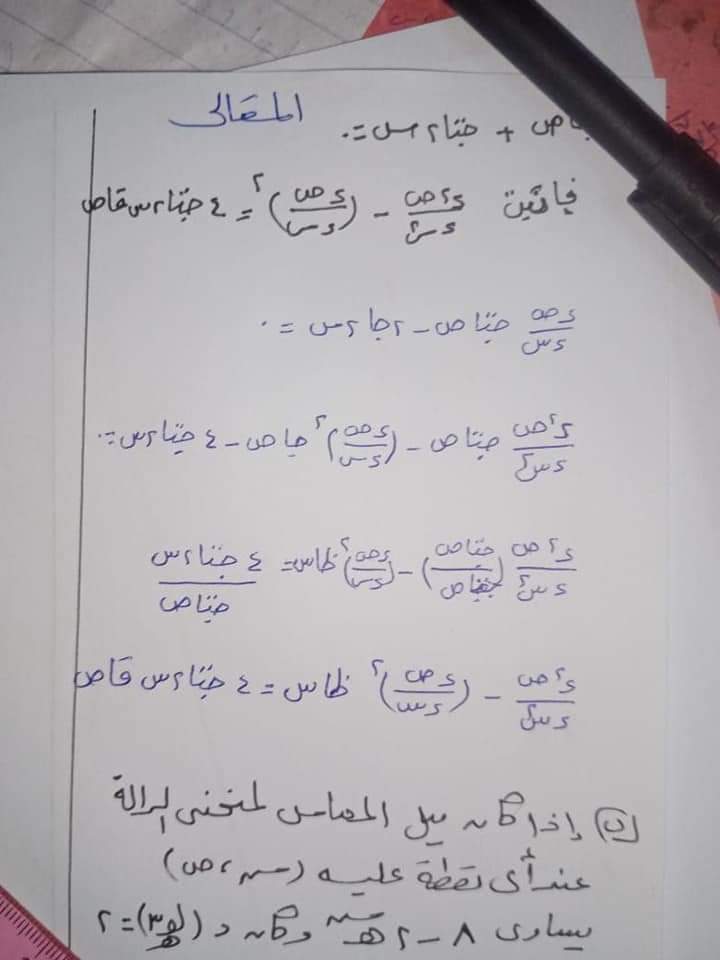 المقالى
جا ص + جتا ٢ س = ٠
فإثبت د٢ص/دس٢ - (دص/دس)٢ = ٤ جتا ٢ س قا ص
دص/دس جتا ص - ٢ جا ٢ س = ٠
د٢ص/دس٢ جتا ص - (دص/دس)٢ جا ص - ٤ جتا ٢ س = ٠
د٢ص/دس٢ (جتا ص/جتا ص) - (دص/دس)٢ ظا س = ٤ جتا ٢ س/جتا ص
د٢ص/دس٢ - (دص/دس)٢ ظا س = ٤ جتا ٢ س قا ص
إذا كان ميل المماس لمنحنى الدالة
عند أى نقطة عليه (س ، ص)
يساوى ٨ - ٢ هـ^س وكان د (لو ٣) = ٢